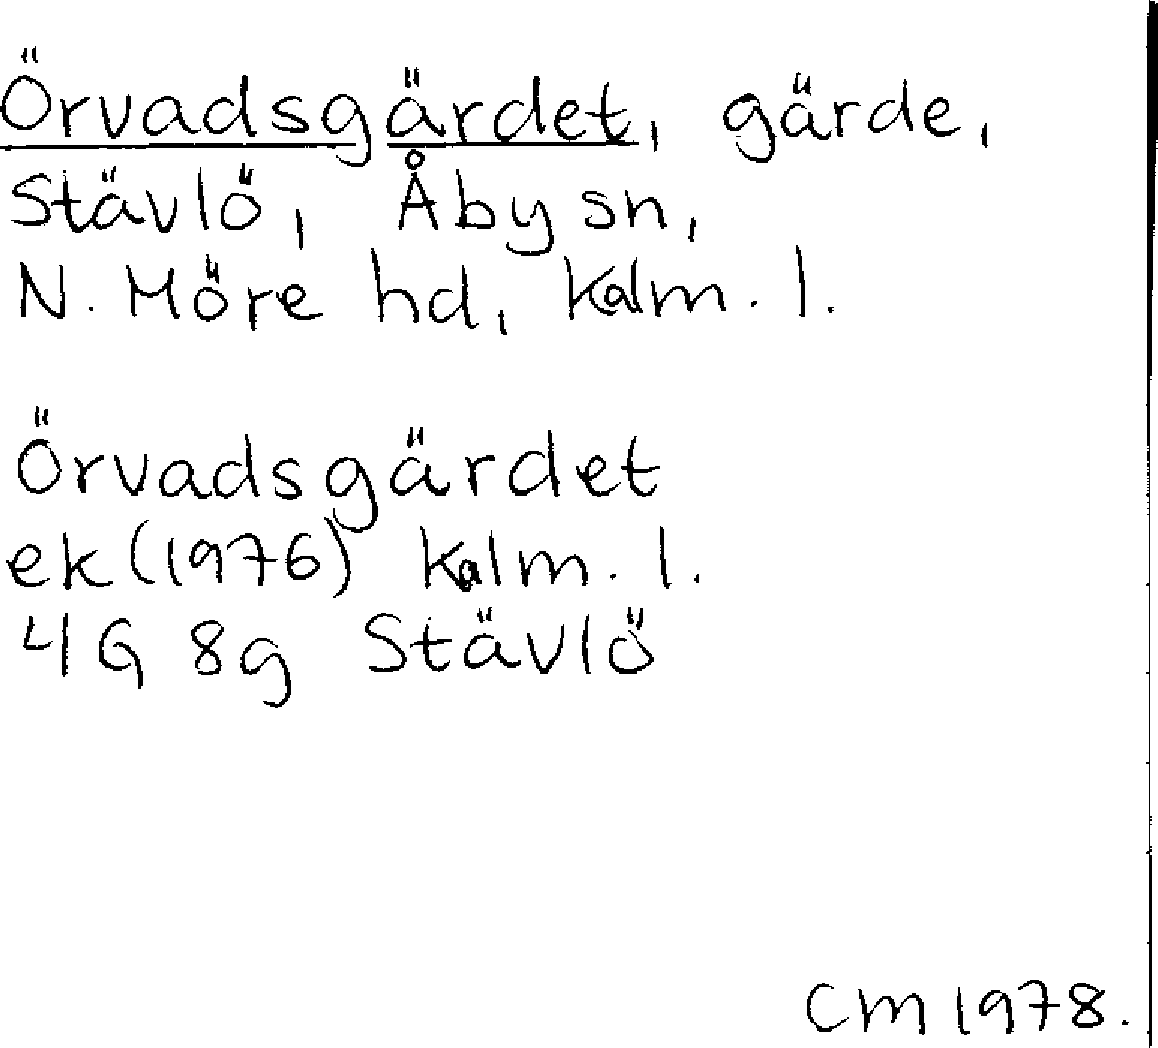 Örvadsgärdet, gärde,
Stävlö, Åby sn,
N. Möre hd, Kalm. l.
Örvadsgärdet
ek (1976) Kalm. l.
4G 8g Stävlö
CM 1978.